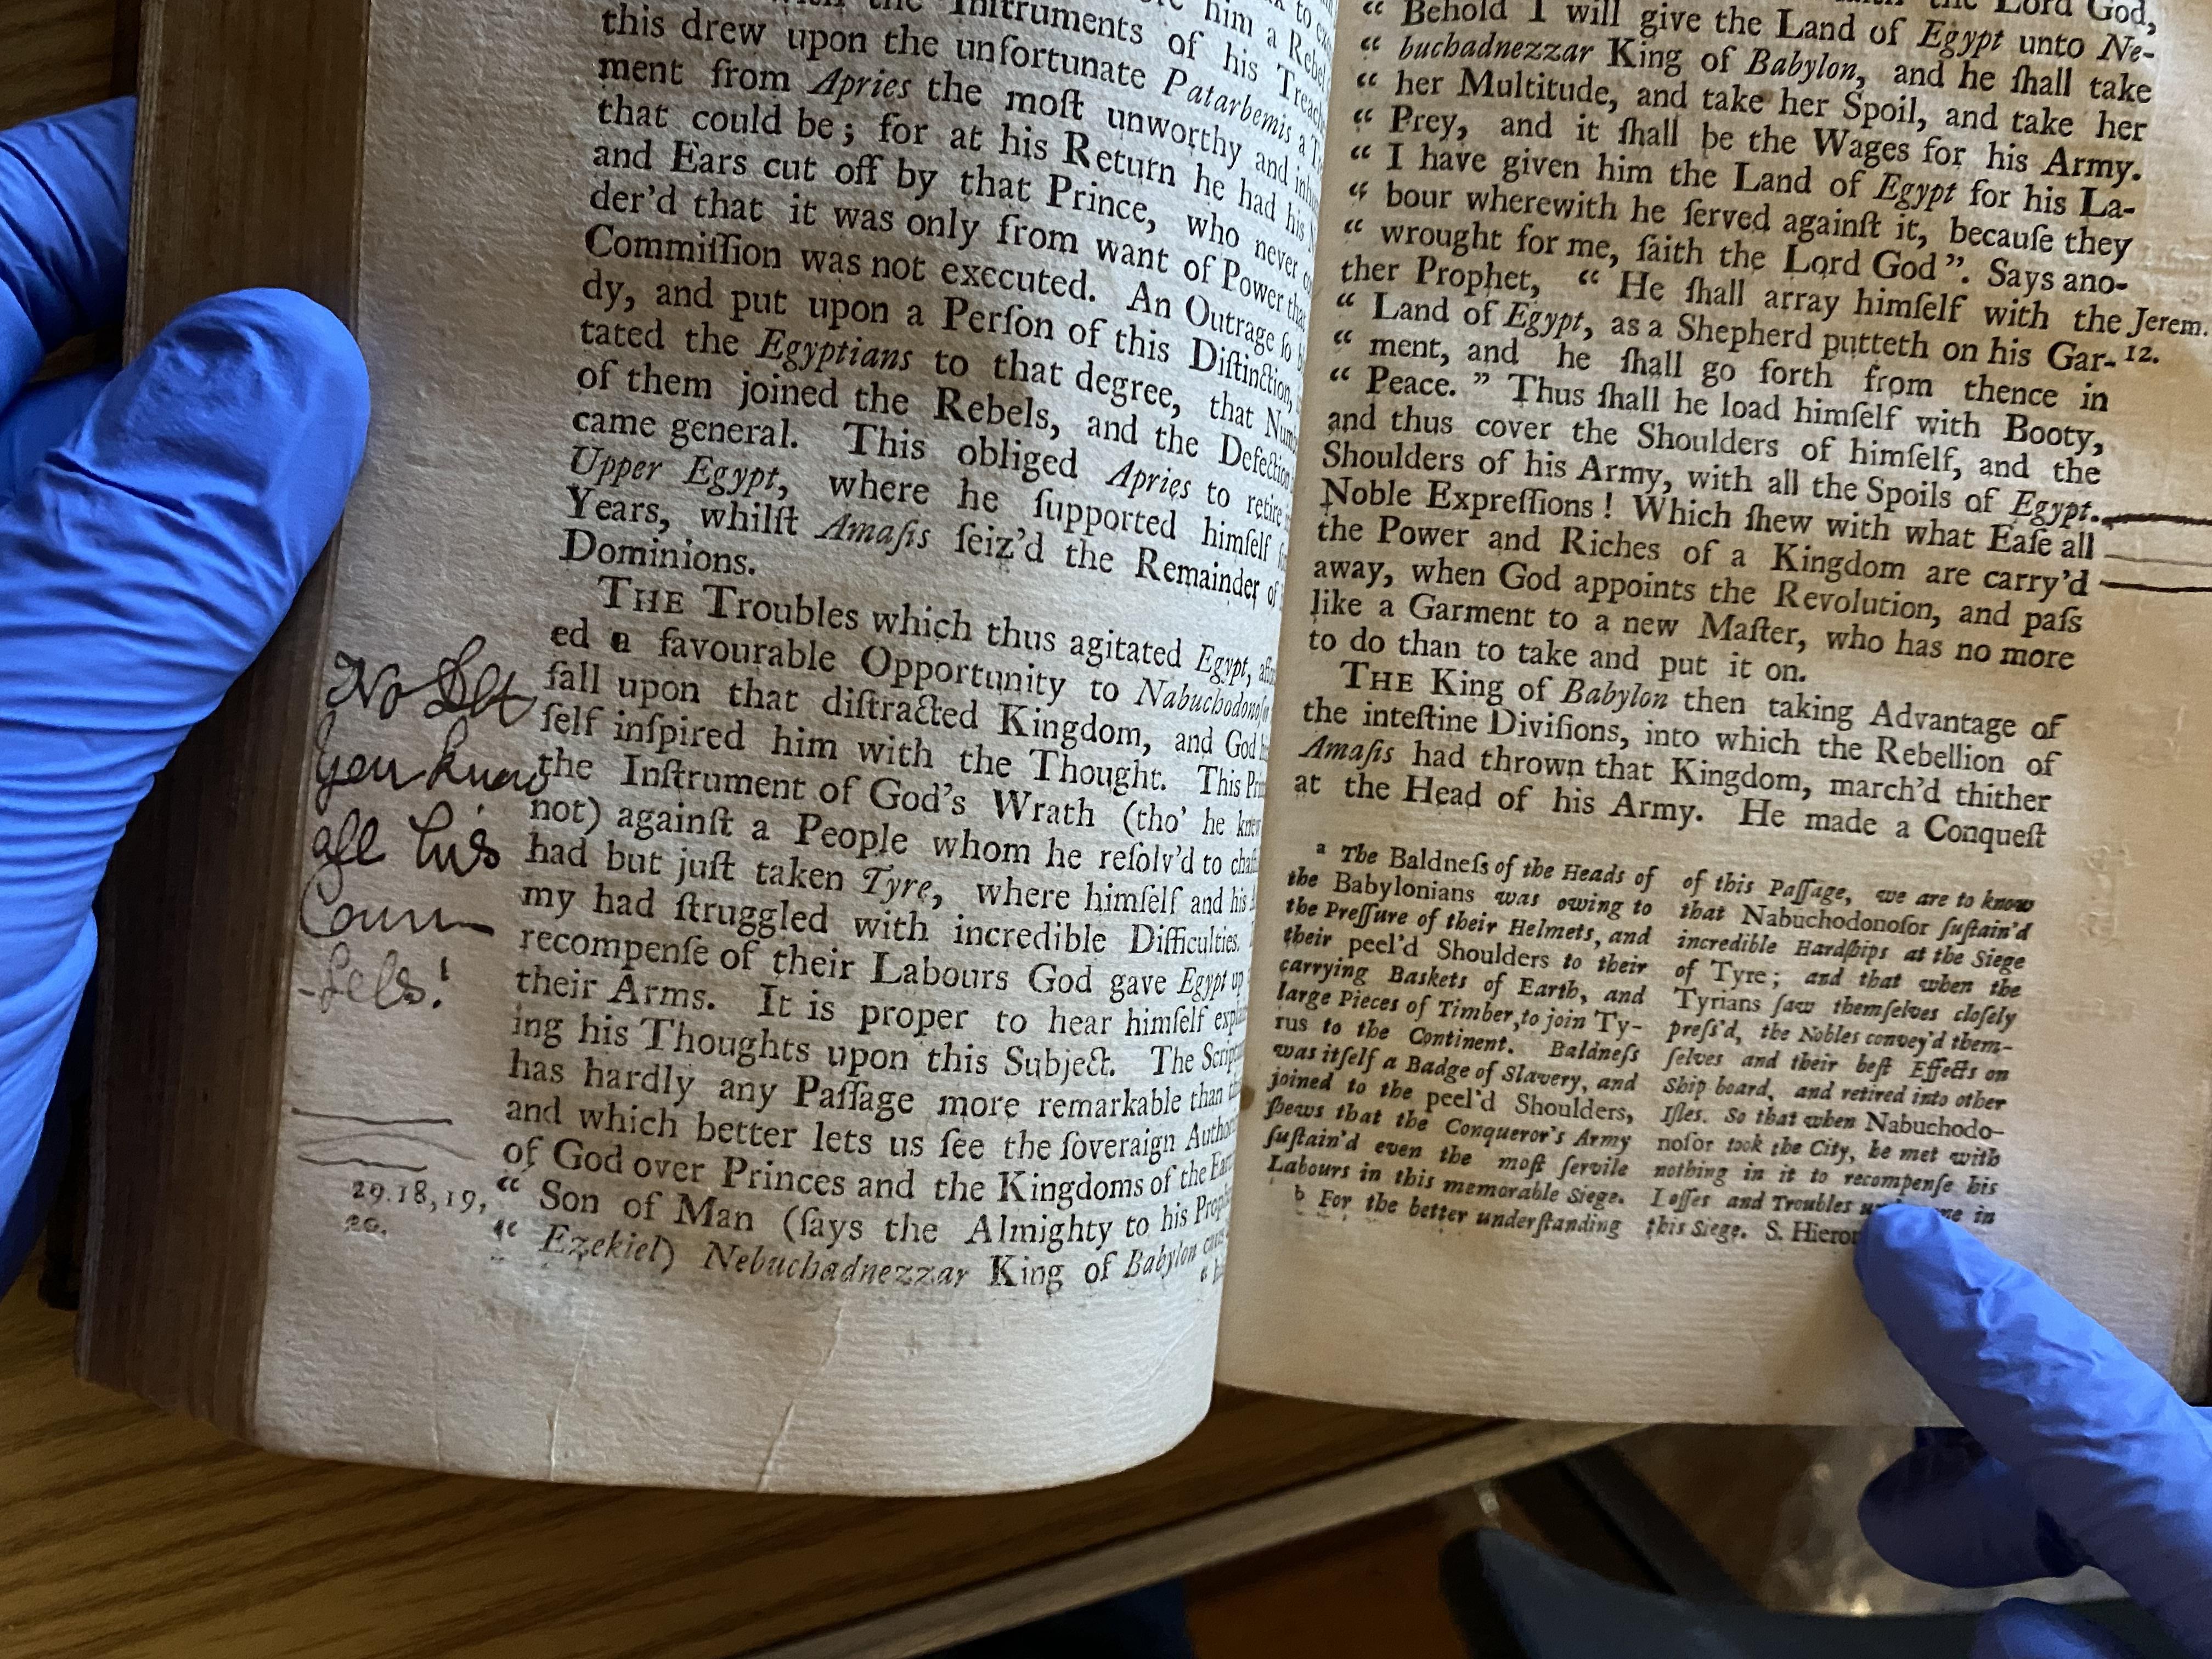 the Instruments of his
this drew upon the unfortunate Patarbemis a
ment from Apries the moſt unworthy and
that could be; for at his Return he had his
and Ears cut off by that Prince, who never
der'd that it was only from want of Power that
Commiſſion was not executed. An Outrage ſo
dy, and put upon a Perſon of this Diſtinction,
tated the Egyptians to that degree, that
of them joined the Rebels, and the Defection
came general. This obliged Apries to retire
Upper Egypt, where he ſupported himſelf
Years, whilſt Amaſis ſeiz'd the Remainder of
Dominions.
THE Troubles which thus agitated Egypt,
ed a favourable Opportunity to
fall upon that diſtracted Kingdom, and God
ſelf inſpired him with the Thought. This
the Inſtrument of God's Wrath (tho' he
not) againſt a People whom he reſolv'd to
had but juſt taken Tyre, where himſelf and his
my had ſtruggled with incredible Difficulties.
recompenſe of their Labours God gave Egypt up
their Arms. It is proper to hear himſelf
ing his Thoughts upon this Subject. The
has hardly any Paſſage more remarkable than
and which better lets us ſee the ſoveraign
of God over Princes and the Kingdoms of the
“ Son of Man (ſays the Almighty to his
“ Ezekiel) Nebuchadnezzar King of Babylon
No
you know
all his
Coun
-sels!
29.18,19,
20.
the Lord God,
“ Behold I will give the Land of Egypt unto Ne-
“ buchadnezzar King of Babylon, and he ſhall take
“ her Multitude, and take her Spoil, and take her
“ Prey, and it ſhall be the Wages for his Army.
“ I have given him the Land of Egypt for his La-
“ bour wherewith he ſerved againſt it, becauſe they
“ wrought for me, ſaith the Lord God”. Says ano-
ther Prophet, “ He ſhall array himſelf with the
“ Land of Egypt, as a Shepherd putteth on his Gar-
“ ment, and he ſhall go forth from thence in
“ Peace. ” Thus ſhall he load himſelf with Booty,
and thus cover the Shoulders of himſelf, and the
Shoulders of his Army, with all the Spoils of Egypt.
Noble Expreſſions! Which ſhew with what Eaſe all
the Power and Riches of a Kingdom are carry'd
away, when God appoints the Revolution, and paſs
like a Garment to a new Maſter, who has no more
to do than to take and put it on.
THE King of Babylon then taking Advantage of
the inteſtine Diviſions, into which the Rebellion of
Amaſis had thrown that Kingdom, march'd thither
at the Head of his Army. He made a Conqueſt
Jerem.
12.
a The Baldneſs of the Heads of
the Babylonians was owing to
the Preſſure of their Helmets, and
their peel'd Shoulders to their
carrying Baskets of Earth, and
large Pieces of Timber, to join Ty-
rus to the Continent. Baldneſs
was itſelf a Badge of Slavery, and
joined to the peel'd Shoulders,
ſhews that the Conqueror's Army
ſuſtain'd even the moſt ſervile
Labours in this memorable Siege.
b For the better underſtanding
of this Paſſage, we are to know
that Nabuchodonoſor ſuſtain'd
incredible Hardſhips at the Siege
of Tyre; and that when the
Tyrians ſaw themſelves cloſely
preſs'd, the Nobles convey'd them-
ſelves and their beſt Effects on
Ship board, and retired into other
Iſles. So that when Nabuchodo-
noſor took the City, he met with
nothing in it to recompenſe his
Loſſes and Troubles in
this Siege. S.